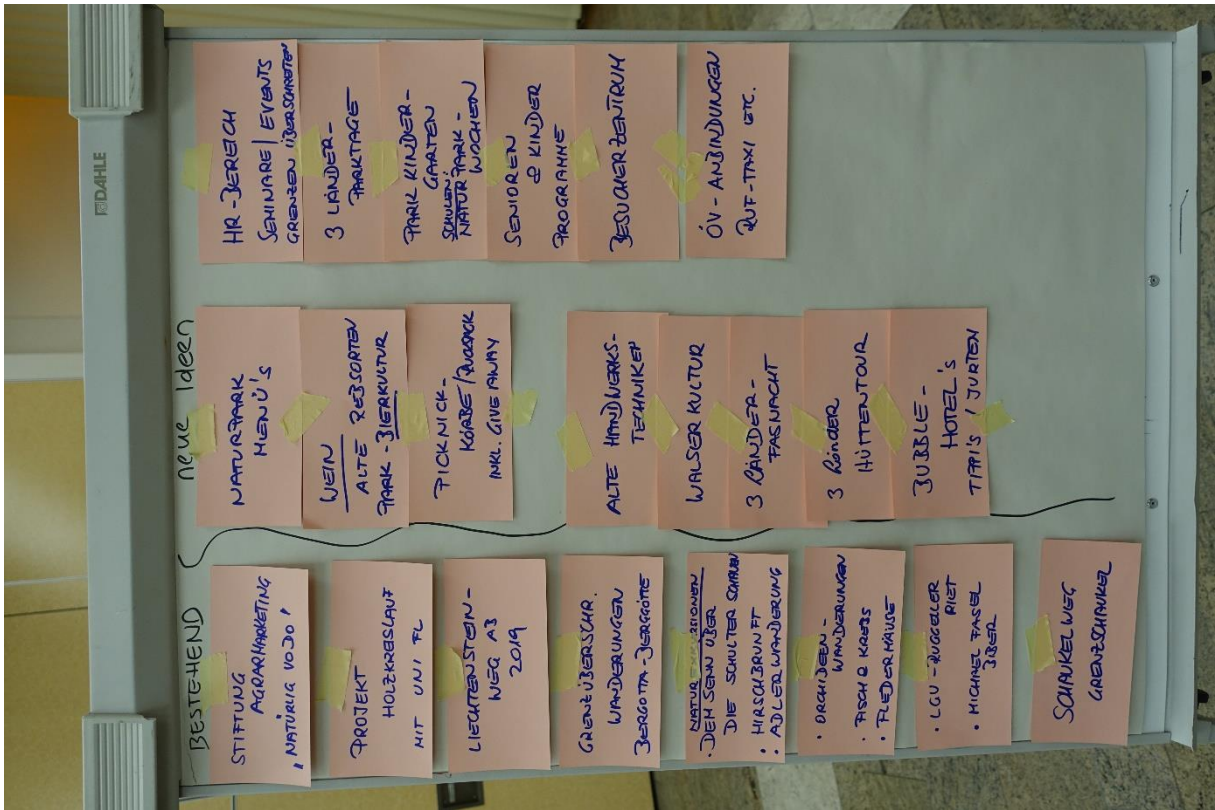 DAHLE
BESTEHEND
STIFTUNG
AGRARMARKETING
PROJEKT
HOLZKREISLAUF
MIT UNI FL
LIECHTENSTEIN-
WEG AB
2019
GRENZÜBERSCHR.
WANDERUNGEN
BERGOTTA-BERGGÖTTE
NATUREXKURSIONEN
· DEM SENN ÜBER
DIE SCHULTER SCHAUEN
· HIRSCHBRUNFT
· ADLERWANDERUNG
· ORCHIDEEN-
WANDERUNGEN
· FISCH & KREBS
· FLEDERMÄUSE
· LGU-RUGGELLER
RIET
· MICHAEL FASEL
BIBER
SCHAUKELWEG
GRENZSCHAUKLER
neue Ideen
NATURPARK
MENÜ'S
WEIN
ALTE REBSORTEN
PARK-BIERKULTUR
PICKNICK-
KÖRBE/RUCKSACK
INKL. GIVE AWAY
ALTE HANDWERKS-
TECHNIKEN
WALSER KULTUR
3 LÄNDER-
FASNACHT
3 Länder
HÜTTENTOUR
BUBBLE-
HOTEL'S
TIPPI'S / JURTEN
HR-BEREICH
SEMINARE/EVENTS
GRENZEN ÜBERSCHREITEN
3 LÄNDER-
PARKTAGE
PARK KINDER-
GARTEN
SCHULEN:
NATURPARK-
WOCHEN
SENIOREN
& KINDER
PROGRAMME
BESUCHERZENTRUM
ÖV-ANBINDUNGEN
RUF-TAXI ETC.